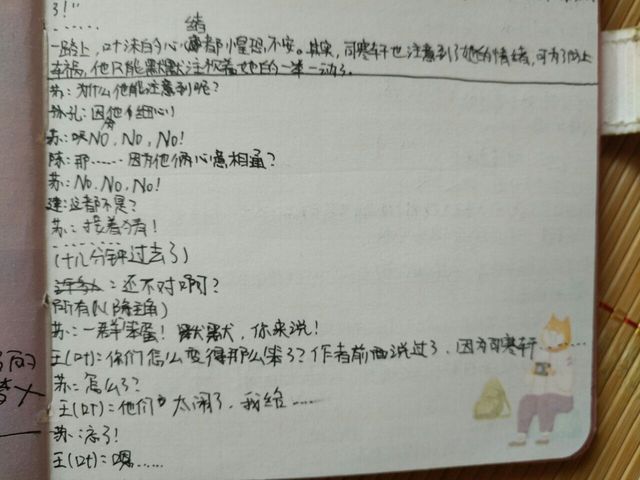 了！"
……
绪
一路上，叶沫白的心都惶恐不安。其实，司寒轩也注意到了她的情绪，可为了防止
车祸，他只能默默注视着她的一举一动了。
苏：为什么他能注意到呢？
孙孔：因他细心
苏：NO，No，No！
陈：那……因为他俩心意相通？
苏：No，No，No！
连：这都不是？
苏：接着猜！
（十几分钟过去了）
：还不对啊？
所有（N除主角）
苏：一群笨蛋！默默，你来说！
王（叶）：你们怎么变得那么笨了？作者前面说过了，因为司寒轩……
苏：怎么了？
王（叶）：他们太闹了，我给……
苏：忘了！
王（叶）：嗯……